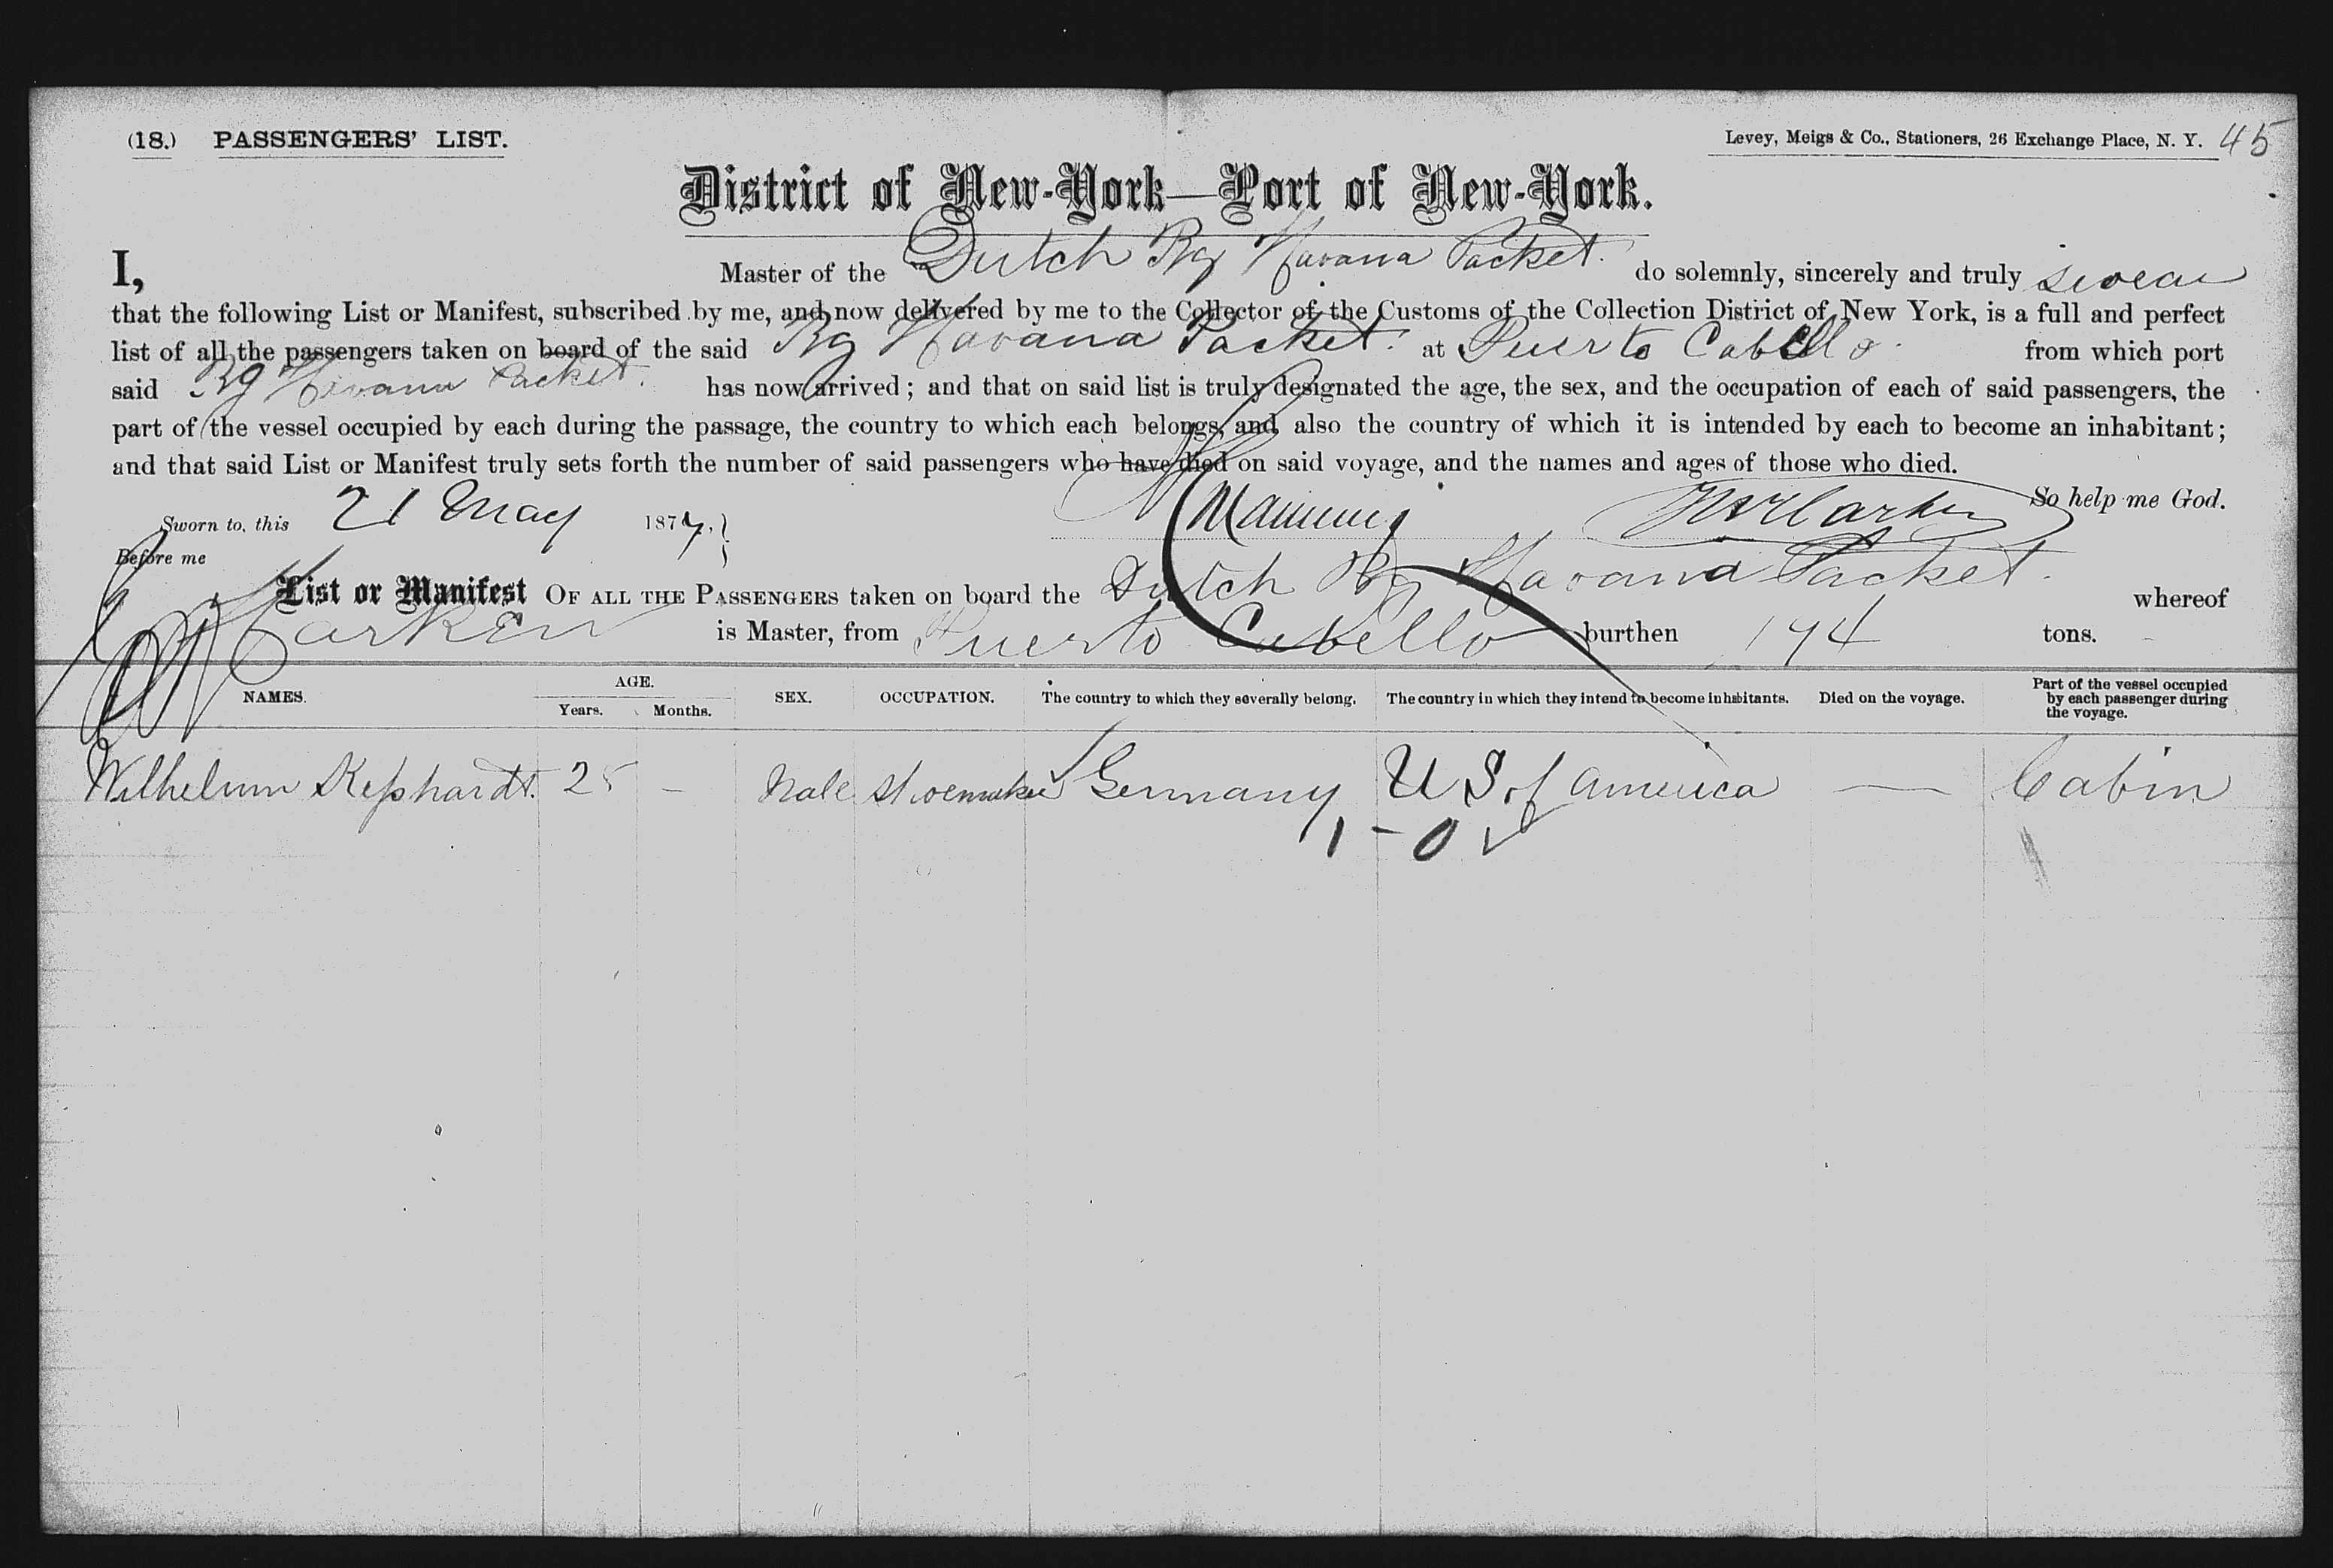 (18.) PASSENGERS' LIST. Levey, Meigs & Co., Stationers, 26 Exchange Place, N. Y. 45
District of New-York—Port of New-York.
I, Master of the Dutch Bg Havana Packet. do solemnly, sincerely and truly swear
that the following List or Manifest, subscribed by me, and now delivered by me to the Collector of the Customs of the Collection District of New York, is a full and perfect
list of all the passengers taken on board of the said Bg Havana Packet. at Puerto Cabello. from which port
said Bg Havana Packet. has now arrived; and that on said list is truly designated the age, the sex, and the occupation of each of said passengers, the
part of the vessel occupied by each during the passage, the country to which each belongs, and also the country of which it is intended by each to become an inhabitant;
and that said List or Manifest truly sets forth the number of said passengers who have died on said voyage, and the names and ages of those who died.
So help me God.
Sworn to, this 21 May 1877.
Before me
List or Manifest OF ALL THE PASSENGERS taken on board the Dutch Bg Havana Packet. whereof
Harken is Master, from Puerto Cabello burthen 174 tons.
NAMES. AGE. Years. Months. SEX. OCCUPATION. The country to which they severally belong. The country in which they intend to become inhabitants. Died on the voyage. Part of the vessel occupied by each passenger during the voyage.
Wilhelmm 25 — Male Shoemaker Germany U S of America — Cabin
1 - 0